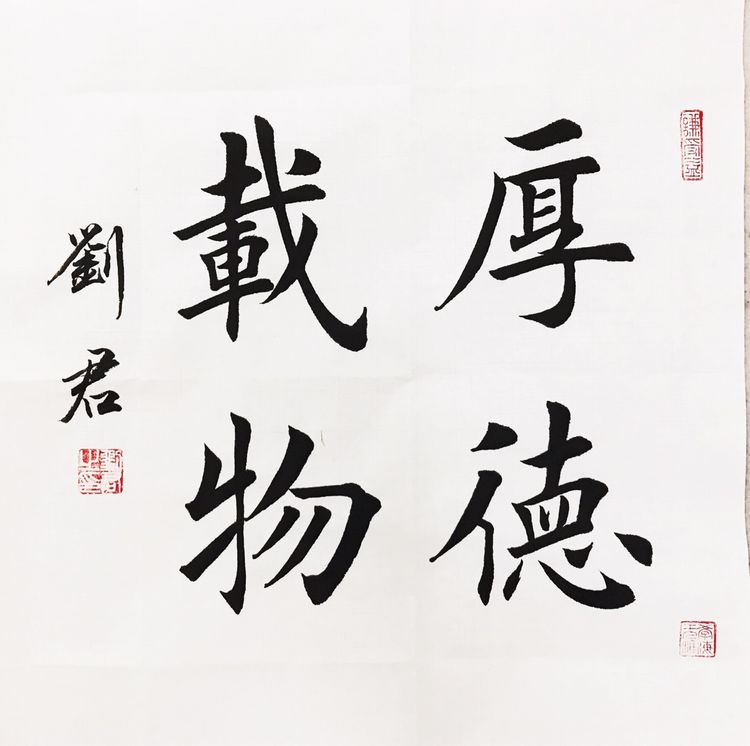 厚德
載物
劉君